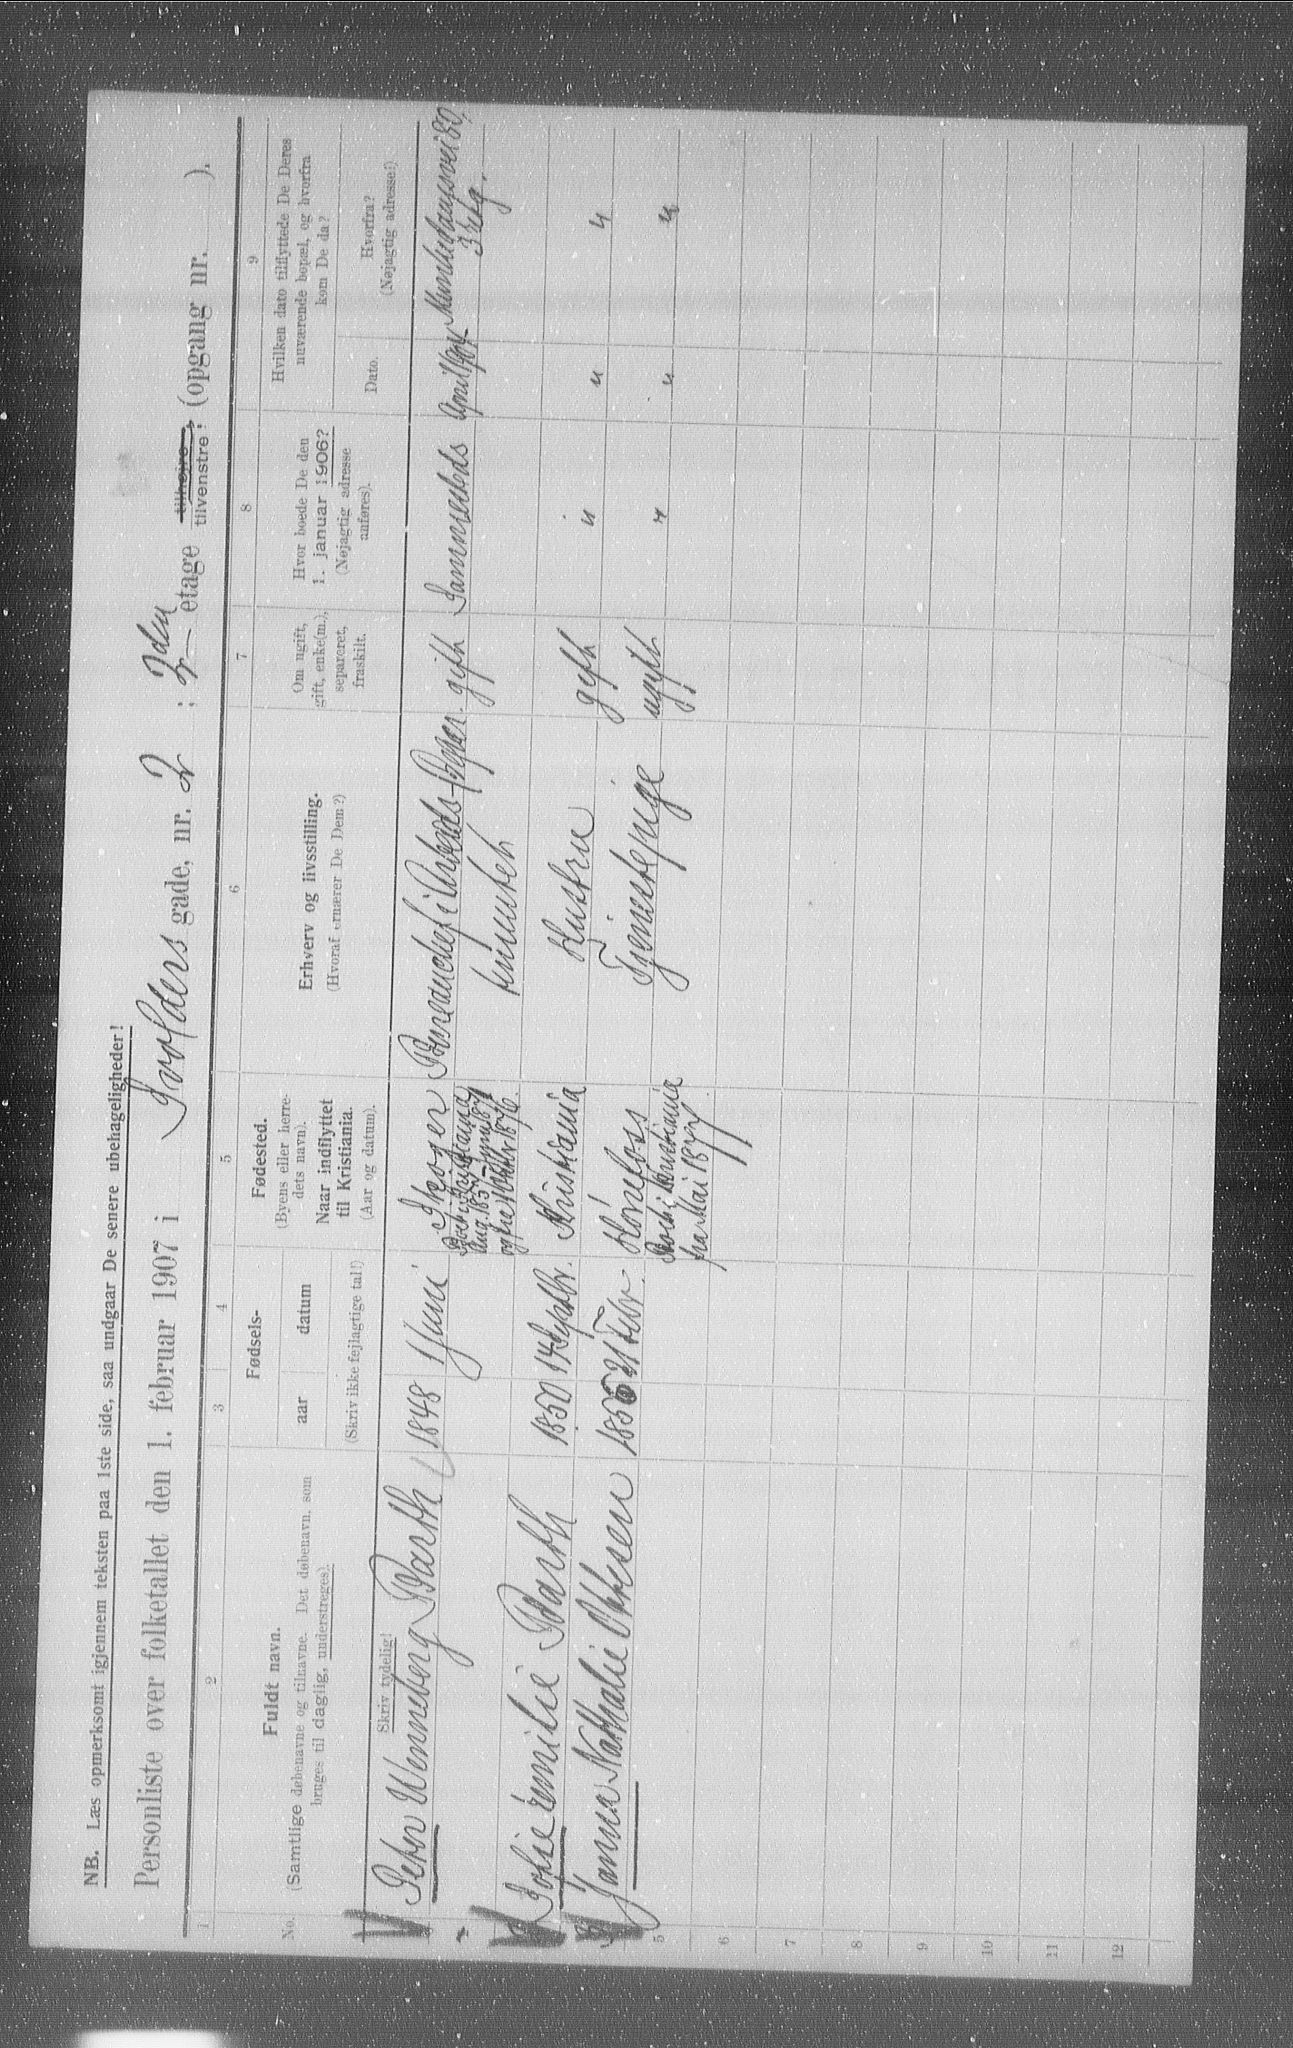 NB. Læs opmerksomt igjennem teksten paa 1ste side, saa undgaar De senere ubehageligheder!
Personliste over folketallet den 1. februar 1907 i Svolders gade, nr. 2 ; 2den etage tilhøjre, tilvenstre! (opgang nr. ).
1 2 3 4 5 6 7 8 9
No.
Fuldt navn.
(Samtlige døbenavne og tilnavne. Det døbenavn, som
bruges til daglig, understreges).
Skriv tydelig!
Fødsels-
aar datum
(Skriv ikke fejlagtige tal!)
Fødested.
(Byens eller herre-
dets navn).
Naar indflyttet
til Kristiania.
(Aar og datum).
Erhverv og livsstilling.
(Hvoraf ernærer De Dem?)
Om ugift,
gift, enke(m.),
separeret,
fraskilt.
Hvor boede De den
1. januar 1906?
(Nøjagtig adresse
anføres).
Hvilken dato tilflyttede De Deres
nuværende bopæl, og hvorfra
kom De da?
Dato.
Hvorfra?
(Nøjagtig adresse!)
Peter Wenneberg Barth 1848 1 Juni Skoger Bureauchef i Arbeids-Depar- gift Sammesteds April 1904 Munkedamsvei 80,
tementet 3 etg.
Sofie Emilie Barth 1850 14 Septbr. Kristiania Hustru gift " " "
Janna Nathalie Ottesen 1856 21 Febr. Hönefoss Tjenestepige ugift " " "
Boet i Kristiania
fra Mai 1877
5
6
7
8
9
10
11
12